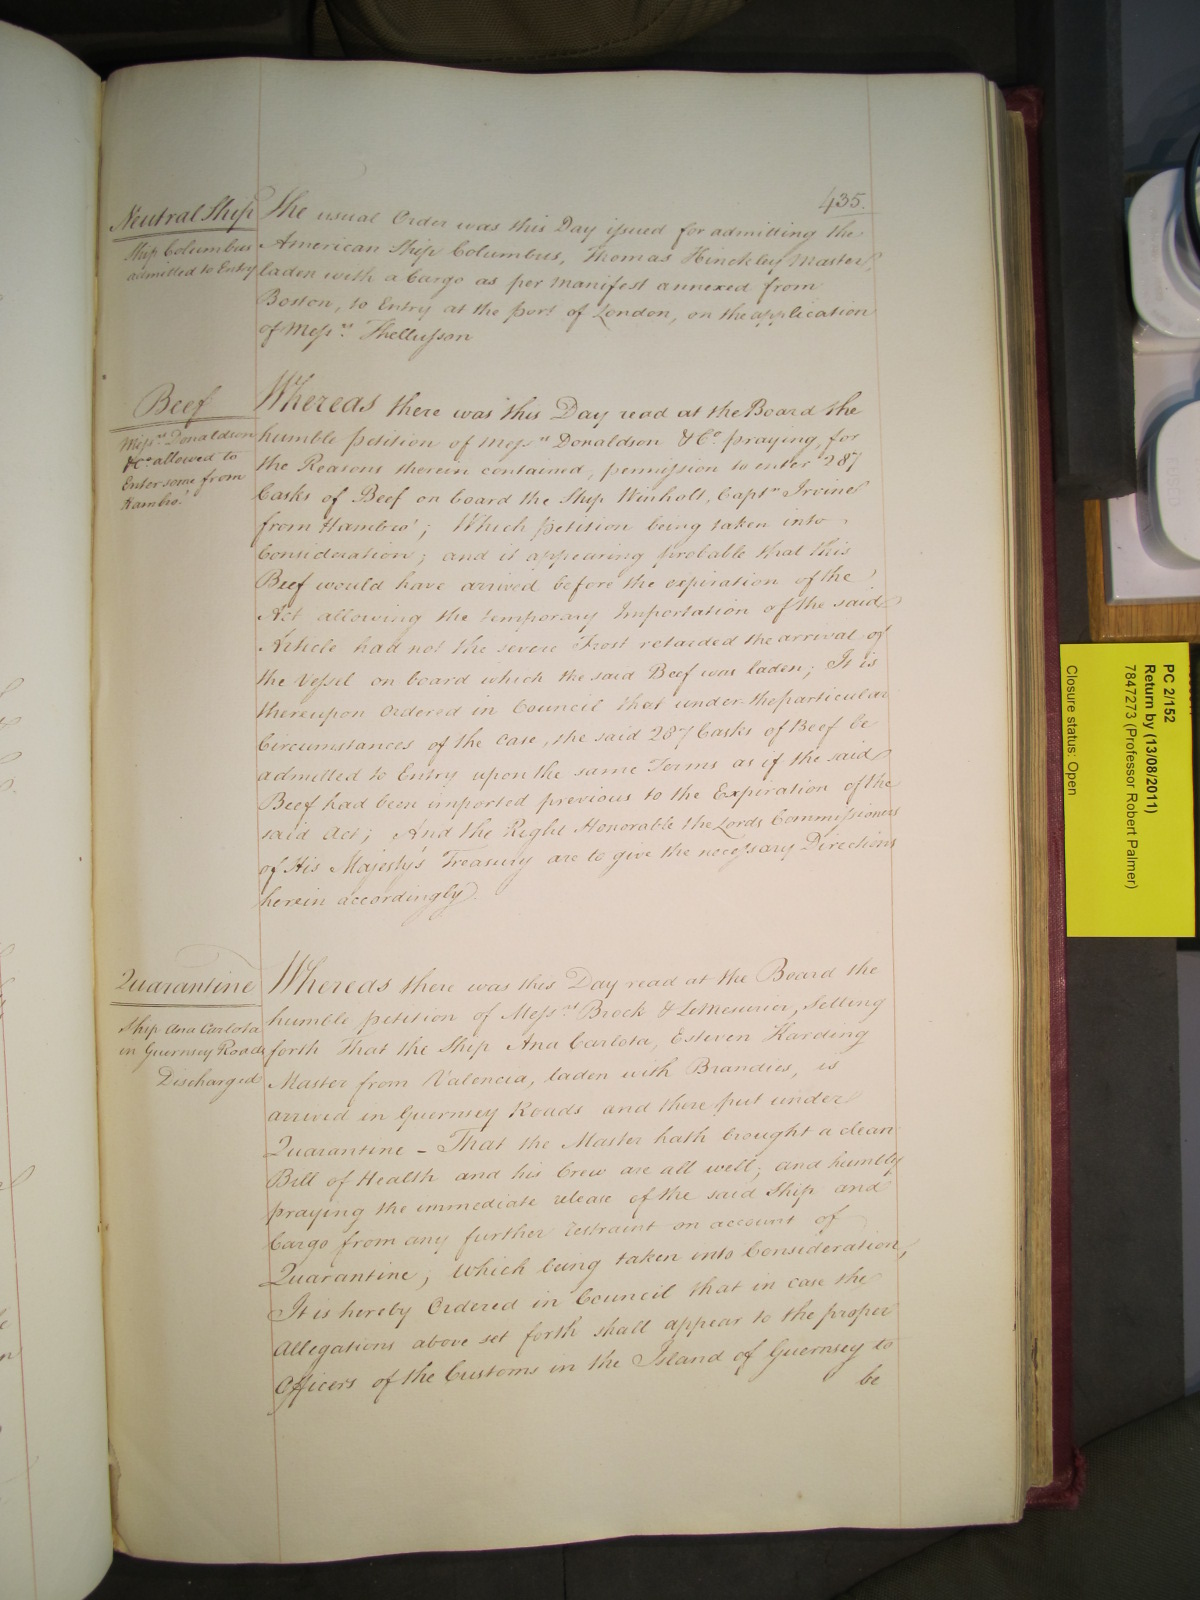 435.
Neutral Ship
Ship Columbus
admitted to Entry
The usual Order was this Day issued for admitting the
American Ship Columbus, Thomas Hinckley Master,
laden with a Cargo as per Manifest annexed from
Boston, to Entry at the port of London, on the application
of Messrs. Thellusson
Beef
Messrs. Donaldson
& Co. allowed to
Enter some from
Hambro'
Whereas there was this Day read at the Board the
humble petition of Messrs. Donaldson & Co. praying, for
the Reasons therein contained, permission to enter 287
Casks of Beef on board the Ship Winholt, Captn. Irvine
from Hambro'; Which petition being taken into
Consideration; and it appearing probable that this
Beef would have arrived before the expiration of the
Act allowing the temporary Importation of the said
Article had not the severe Frost retarded the arrival of
the Vessel on board which the said Beef was laden; It is
thereupon Ordered in Council that under the particular
Circumstances of the Case, the said 287 Casks of Beef be
admitted to Entry upon the same Terms as if the said
Beef had been imported previous to the Expiration of the
said Act; And the Right Honorable the Lords Commissioners
of His Majesty's Treasury are to give the necessary Directions
herein accordingly.
Quarantine
Ship Ana Carlota
in Guernsey Roads
Discharged
Whereas there was this Day read at the Board the
humble petition of Messrs. Brock & LeMesurier, Setting
forth That the Ship Ana Carlota, Esteven Harding
Master from Valencia, laden with Brandies, is
arrived in Guernsey Roads and there put under
Quarantine - That the Master hath brought a clean
Bill of Health and his Crew are all well; and humbly
praying the immediate release of the said Ship and
Cargo from any further restraint on account of
Quarantine; Which being taken into Consideration,
It is hereby Ordered in Council that in case the
Allegations above set forth shall appear to the proper
Officers of the Customs in the Island of Guernsey to
be
PC 2/152
Return by (13/08/2011)
7847273 (Professor Robert Palmer)
Closure status: Open